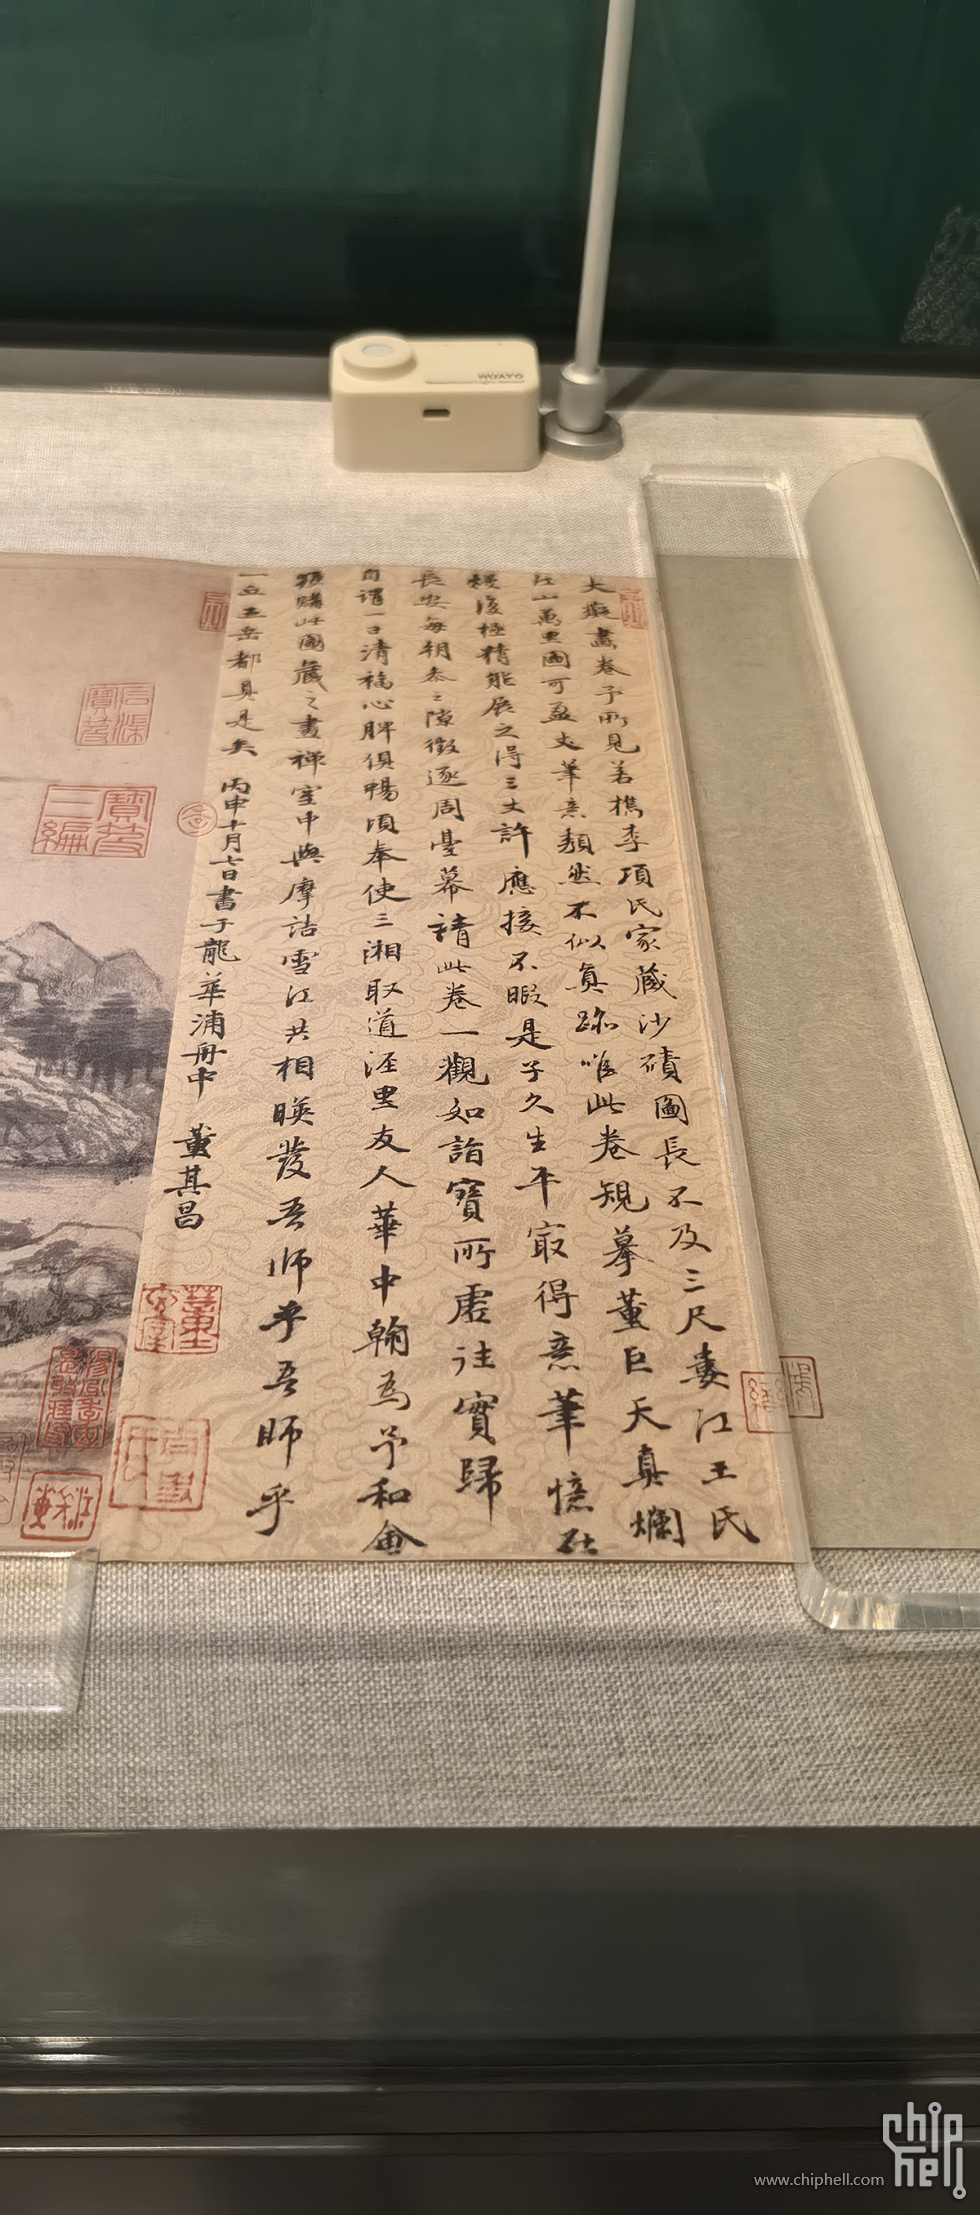 大癡畫卷予所見若檇李項氏家藏沙磧圖長不及三尺婁江王氏
江山萬里圖可盈丈筆意頹然不似真跡唯此卷規摹董巨天真爛
熳復極精能展之得三丈許應接不暇是子久生平冣得意筆憶在
長安每朝參之隙徵逐周臺幕請此卷一觀如詣寶所虛往實歸
自謂一日清福心脾俱暢頃奉使三湘取道涇里友人華中翰為予和會
獲購此圖藏之畫禪室中與摩詰雪江共相暎發吾師乎吾師乎
一丘五岳都具是矣 丙申十月七日書于龍華浦舟中 董其昌
寶笈
三編
HUATO
chip
hell
www.chiphell.com